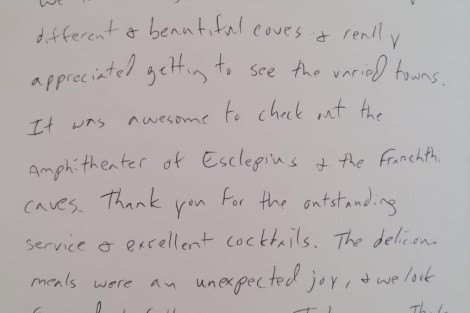 different & beautiful coves & really
appreciated getting to see the varied towns.
It was awesome to check out the
Amphitheater of Esclepius & the Franchth.
caves. Thank you for the outstanding
service & excellent cocktails. The delicious
meals were an unexpected joy, & we look